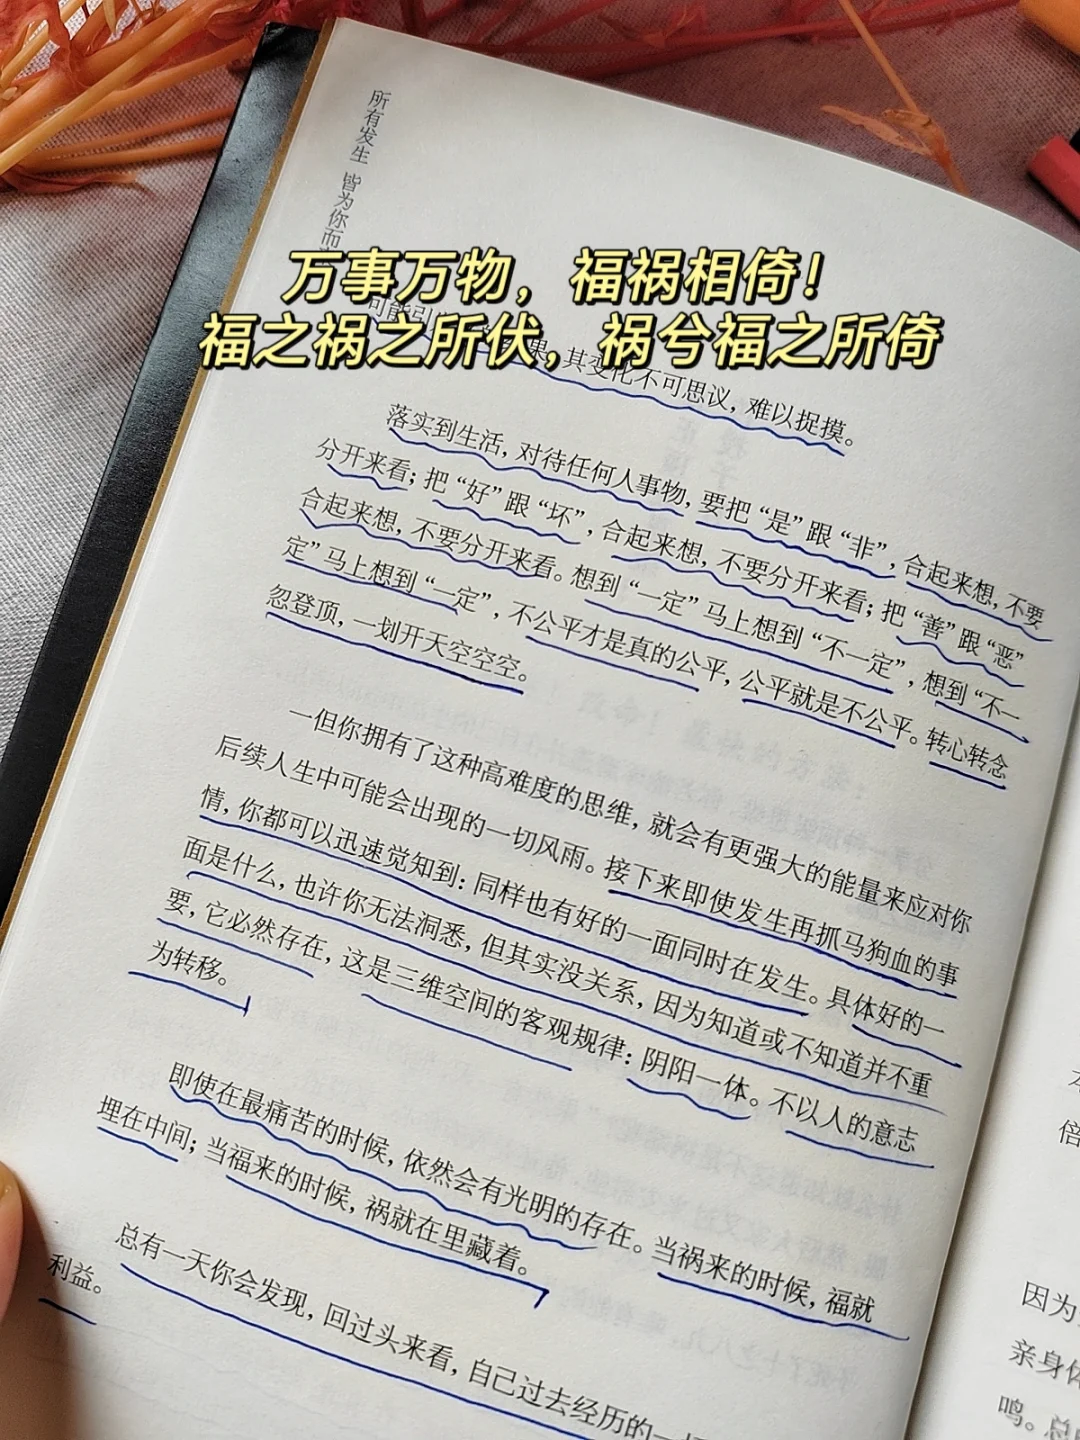 所有发生 皆为你而
万事万物，福祸相倚！
福之祸之所伏，祸兮福之所倚
可能引
果，其变化不可思议，难以捉摸。
落实到生活，对待任何人事物，要把“是”跟“非”，合起来想，不要
分开来看；把“好”跟“坏”，合起来想，不要分开来看；把“善”跟“恶”
合起来想，不要分开来看。想到“一定”马上想到“不一定”，想到“不一
定”马上想到“一定”，不公平才是真的公平，公平就是不公平。转心转念
忽登顶，一划开天空空空。
一但你拥有了这种高难度的思维，就会有更强大的能量来应对你
后续人生中可能会出现的一切风雨。接下来即使发生再抓马狗血的事
情，你都可以迅速觉知到：同样也有好的一面同时在发生。具体好的一
面是什么，也许你无法洞悉，但其实没关系，因为知道或不知道并不重
要，它必然存在，这是三维空间的客观规律：阴阳一体。不以人的意志
为转移。
即使在最痛苦的时候，依然会有光明的存在。当祸来的时候，福就
埋在中间；当福来的时候，祸就在里藏着。
总有一天你会发现，回过头来看，自己过去经历的一
利益。
倍
因为
亲身体
鸣。总